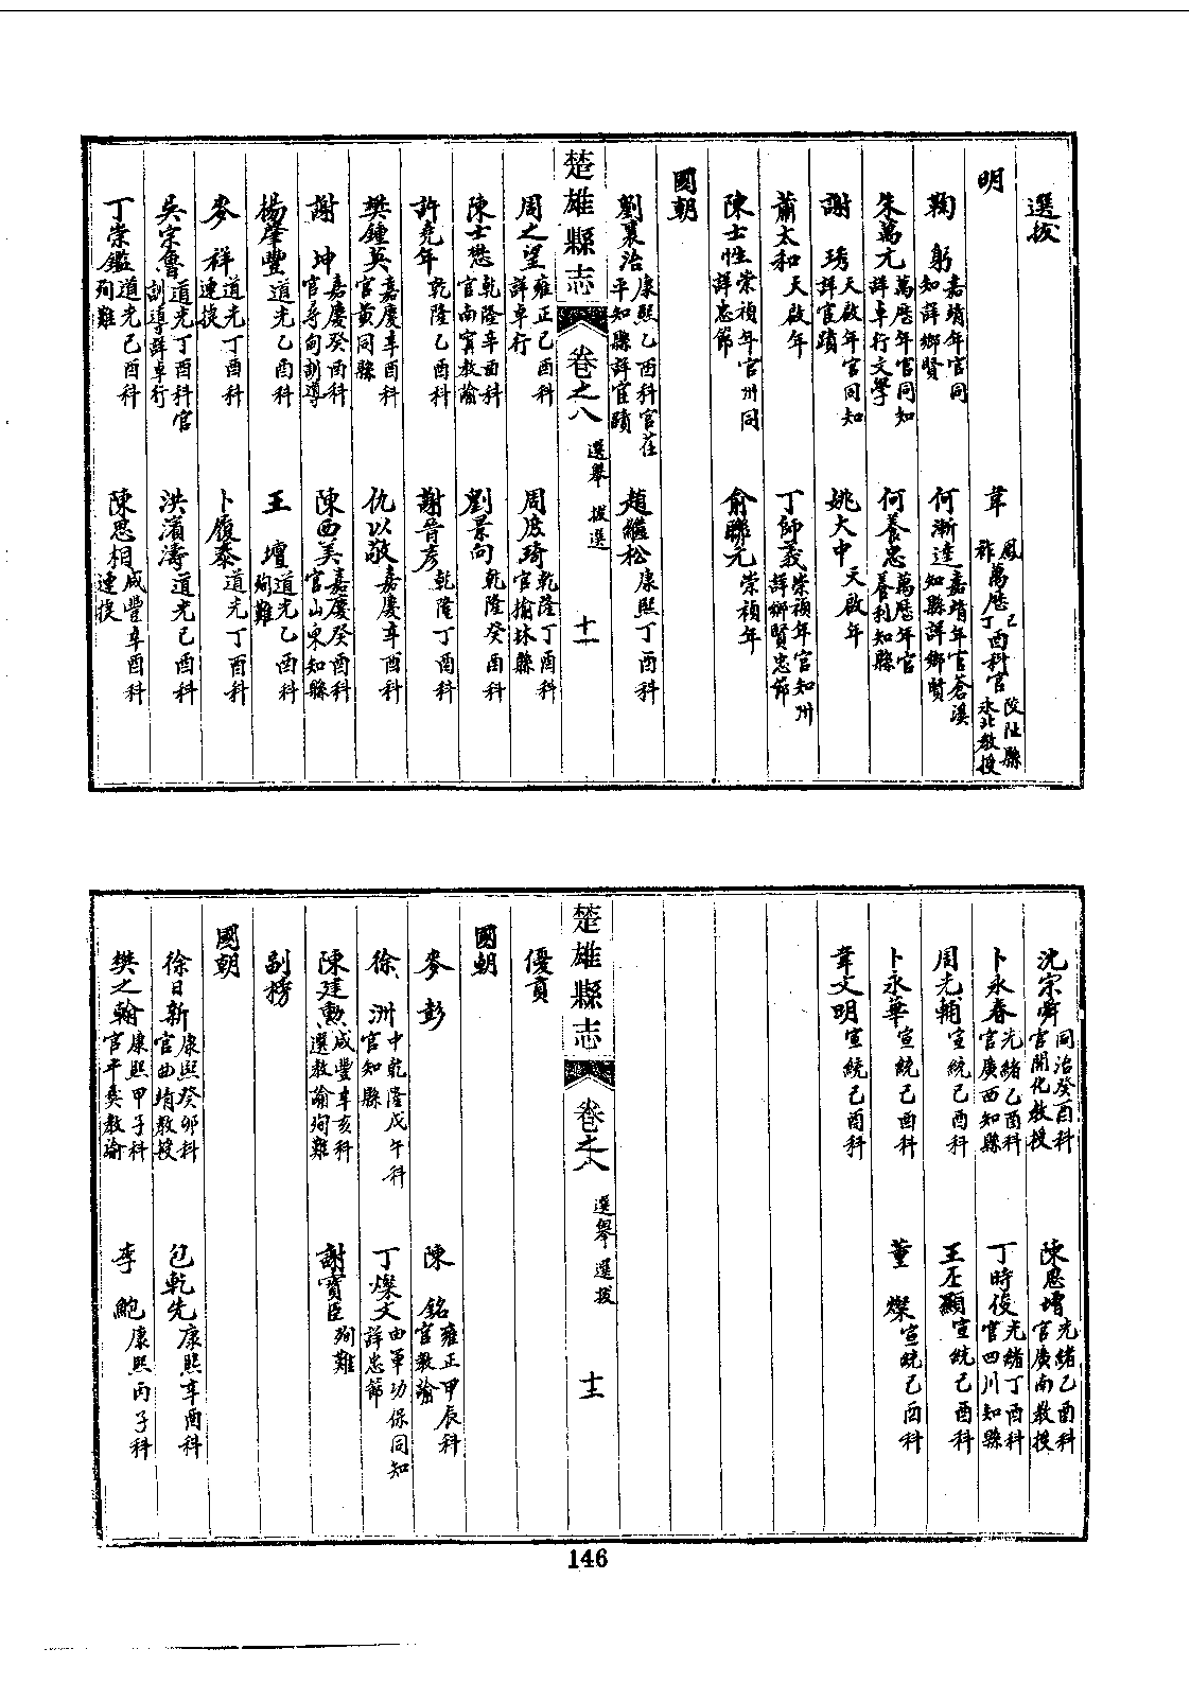 選拔
明
韋 鳳祚萬歷己丁酉科官 陝阯縣永北教授
鞠 躬嘉靖年官同知詳鄉賢
何漸逵嘉靖年官蒼溪知縣詳鄉賢
朱萬元萬歷年官同知詳卓行文學
何養忠萬歷年官養利知縣
謝 琇天啟年官同知詳宦蹟
姚大中天啟年
蕭太和天啟年
丁師義崇禎年官知州詳鄉賢忠節
陳士性崇禎年官州同詳忠節
俞聯元崇禎年
國朝
劉襄治康熙乙酉科官茌平知縣詳宦蹟
趙繼松康熙丁酉科
楚雄縣志
卷之八
選舉 拔選
十一
周之望雍正己酉科詳卓行
周度琦乾隆丁酉科官揄林縣
陳士懋乾隆辛酉科官南寗教諭
劉景向乾隆癸酉科
許堯年乾隆乙酉科
謝晉彥乾隆丁酉科
樊鍾英嘉慶辛酉科官黃同縣
仇以敬嘉慶辛酉科
謝 坤嘉慶癸酉科官尋甸訓導
陳西美嘉慶癸酉科官山東知縣
楊肇豐道光乙酉科
王 壇道光乙酉科殉難
麥 祥道光丁酉科連拔
卜履泰道光丁酉科
吳宗魯道光丁酉科官訓導詳卓行
洪濱濤道光己酉科
丁崇鑑道光己酉科殉難
陳思相咸豐辛酉科連拔
沈宗舜同治癸酉科官開化教授
陳恩增光緒乙酉科官廣南教授
卜永春光緒乙酉科官廣西知縣
丁時俊光緒丁酉科官四川知縣
周光輔宣統己酉科
王丕顯宣統己酉科
卜永華宣統己酉科
董 燦宣統己酉科
韋文明宣統己酉科
楚雄縣志
卷之八
選舉 選拔
十三
優貢
國朝
麥 彭
陳 銘雍正甲辰科官教諭
徐 洲中乾隆戊午科官知縣
丁燦文由軍功保同知詳忠節
陳建勲咸豐辛亥科選教諭殉難
謝寶臣殉難
副榜
國朝
徐日新康熙癸卯科官曲靖教授
包乾先康熙辛酉科
樊之翰康熙甲子科官平彝教諭
李 鮑康熙丙子科
146